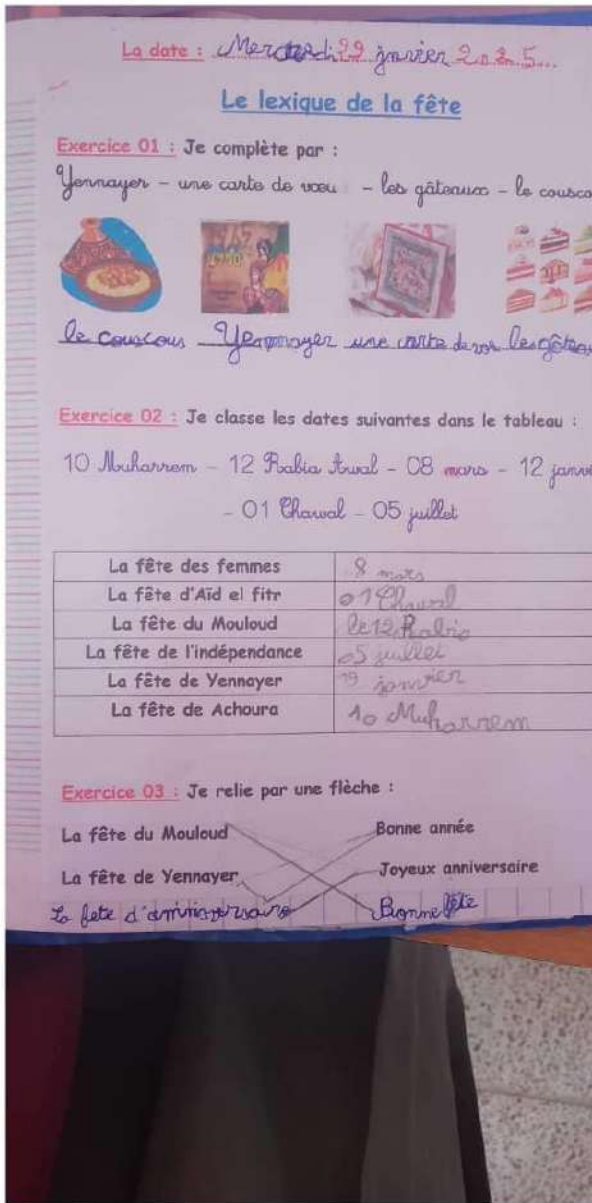 La date : Mercredi 29 janvier 2025...
Le lexique de la fête
Exercice 01 : Je complète par :
Yennayer - une carte de vœu - les gâteaux - le cousco
le couscous Yennayer une carte de vor les gâteau
Exercice 02 : Je classe les dates suivantes dans le tableau :
10 Muharrem - 12 Rabia Awal - 08 mars - 12 janvi
- 01 Chawal - 05 juillet
La fête des femmes 8 mars
La fête d'Aïd el fitr 01 Chawal
La fête du Mouloud le 12 Rabia
La fête de l'indépendance 05 juillet
La fête de Yennayer janvier
La fête de Achoura 10 Muharrem
Exercice 03 : Je relie par une flèche :
La fête du Mouloud Bonne année
La fête de Yennayer Joyeux anniversaire
La fete d'anniversaire Bonne fête